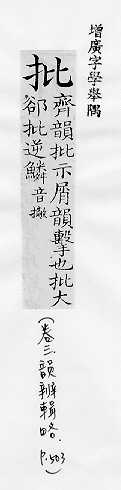 增廣字學舉隅
批
齊韻批示屑韻擊也批大
郤批逆鱗 音撇
(卷三、韻辨輯略、P.503)